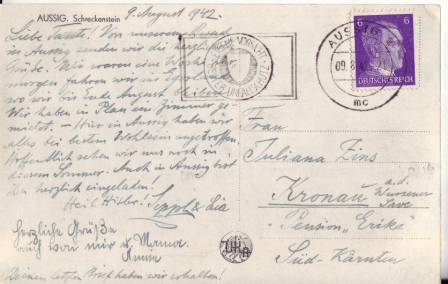 AUSSIG. Schreckenstein
9. August 1942.
Liebe Tante! Von unserem
in Aussig senden wir die herzlichsten
Grüße. Wir waren eine Woche
morgen fahren wir ins
wo wir bis Ende August bleiben.
Wir haben in Plan ein Zimmer ge-
mietet. – Hier in Aussig haben wir
alles bei bestem Wohlsein angetroffen.
Hoffentlich sehen wir uns noch in
diesem Sommer. Auch in Aussig bist
Du herzlich eingeladen.
Heil Hitler! Seppl & Lia
herzliche Grüße
auch von mir u. Mama
Deinen letzten Brief haben wir erhalten!
AUSSIG
09.8
mc
6
DEUTSCHES REICH
Frau
Juliana Zins
Kronau a.d.
Wurzener
Save
Pension "Erika"
Süd-Kärnten